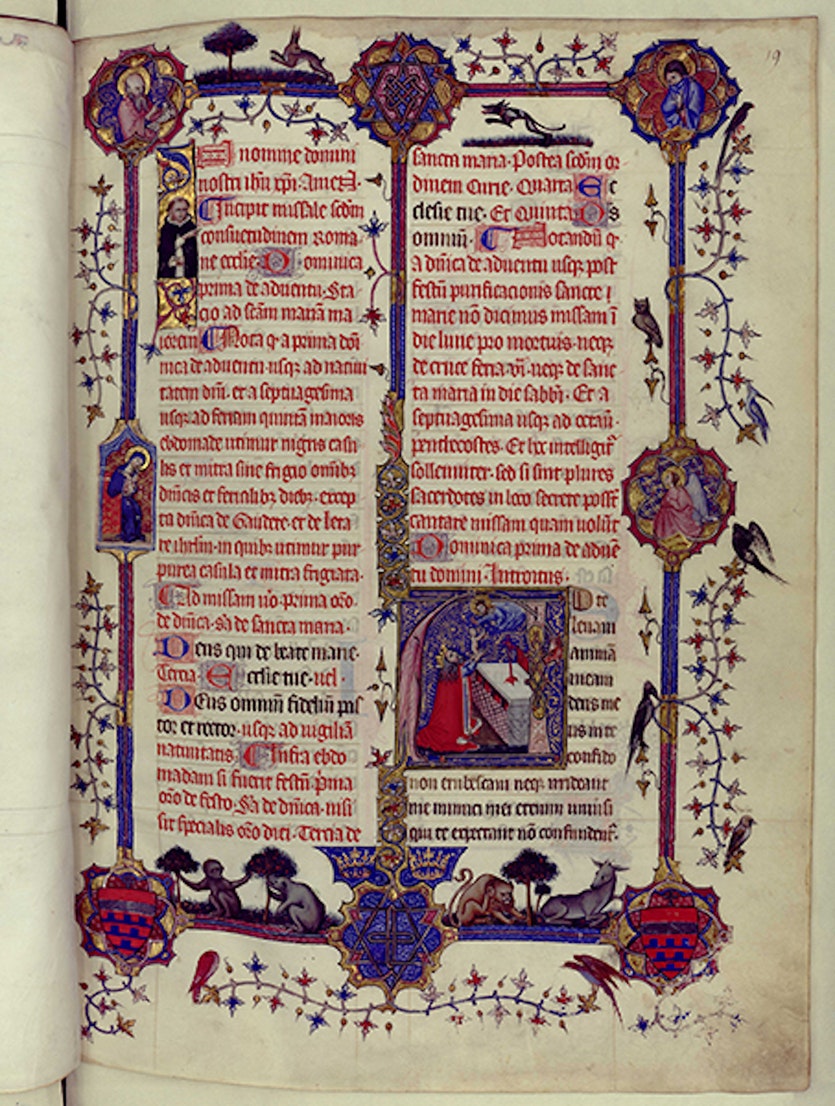 19
In nomine domini
nostri ihu xpi. Amen.
Incipit missale scdm
consuetudinem Roma
ne ecclie. Dominica
prima de adventu. Sta
cio ad scam mariam ma
iorem. Nota q a prima doi
nica de adventu usq; ad nativi
tatem dni. et a septuagesima
usq; ad feriam quintam maioris
ebdomade utimur nigris casu
lis et mitra sine frigio omibz
dnicis et ferialibz diebz. excep
ta dnica de Gaudete. et de leta
re ihrlm. in quibz utimur pur
purea casula et mitra frigiata.
Ad missam vo. prima oro.
de dnica. sa de sancta maria.
Deus qui de beate marie.
Tercia. Ecclesie tue. vel.
Deus omnium fidelium pas
tor et rector. usq; ad vigilia
nativitatis. Infra ebdo
madam si fuerit festum. pma
oro de festo. Sa de dnica. nisi
sit specialis oro diei. Tercia de
sancta maria. Postea scdm or
dinem Curie. Quarta. Ec
clesie tue. Et Quinta. Ds
omnium. Notandum q
a dnica de adventu usq; post
festum purificacionis sancte
marie no dicimus missam
die lune pro mortuis. neq;
de cruce feria vi. neq; de sanc
ta maria in die sabbi. Et a
septuagesima usq; ad octau.
penthecostes. Et hec intelligit
sollenniter. sed si sint plures
sacerdotes in loco secrete posst
cantare missam quam volut
Dominica prima de adve
tu domini. Introitus.
D te
levavi
animam
meam
deus me
us in te
confido
non erubescam neq; irrideant
me inimici mei etenim univsi
qui te expectant no confundent.